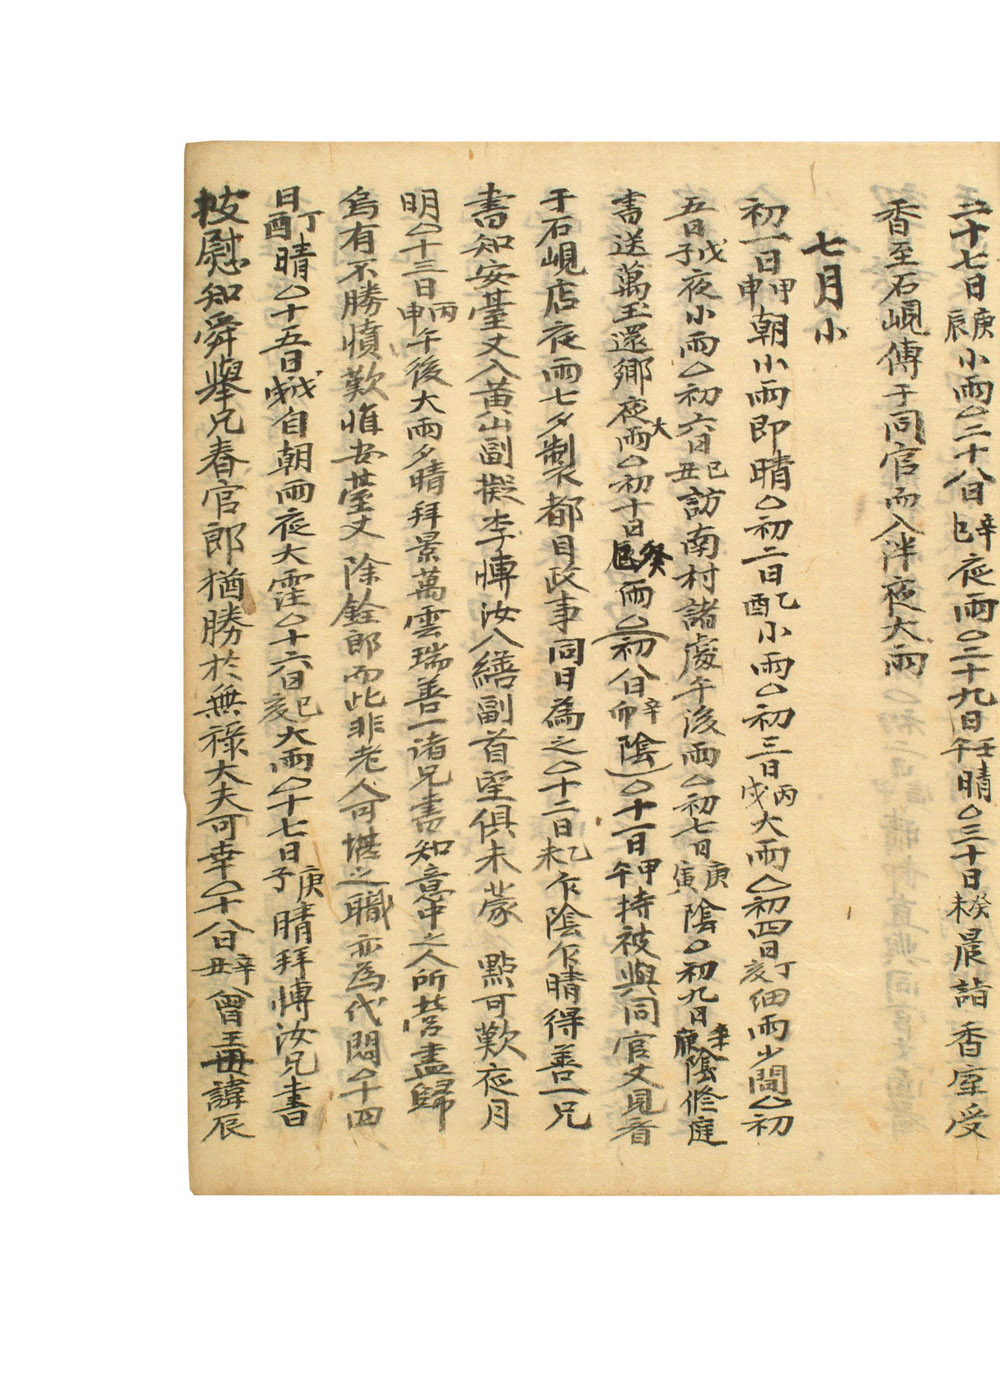 二十七日庚辰小雨△二十八日辛巳夜雨○二十九日壬午晴△三十日癸未晨詣香室受
香至石峴傳于同官而入泮夜大雨
七月小
初一日甲申朝小雨即晴△初二日乙酉小雨△初三日丙戌大雨△初四日丁亥細雨少間△初
五日戊子夜小雨△初六日己丑訪南村諸處午後雨△初七日庚寅陰○初九日辛陰修庭
書送萬玉還鄉夜大雨△初十日癸巳雨△初八日辛卯陰○十一日甲午持被與同官丈見看
于石峴店夜雨七夕製都目政事同日為之△十二日乙未乍陰乍晴得善一兄
書知安臺丈入黃山副擬李愽汝入繕副首望俱未蒙 點可歎夜月
明△十三日丙申午後大雨夕晴拜景萬雲瑞善一諸兄書知意中之人所營盡歸
烏有不勝憤歎惟安臺丈 除銓郎而此非老人可堪之職亦為代悶△十四
日丁酉晴△十五日戊戌自朝雨夜大霔△十六日己亥大雨△十七日庚子晴拜愽汝兄書曰
披慰知舜舉兄春官郎猶勝於無祿大夫可幸△十八日辛丑曾王母諱辰